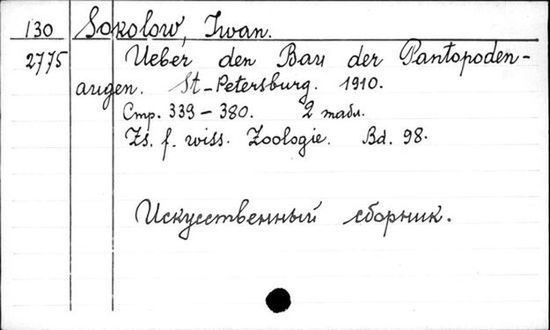 130 Sokolow, Iwan.
2775 Ueber den Bau der Pantopoden-
augen. St-Petersburg. 1910.
Стр. 339-380. 2 табл.
Zs. f. wiss. Zoologie. Bd. 98.
Искусственный сборник.